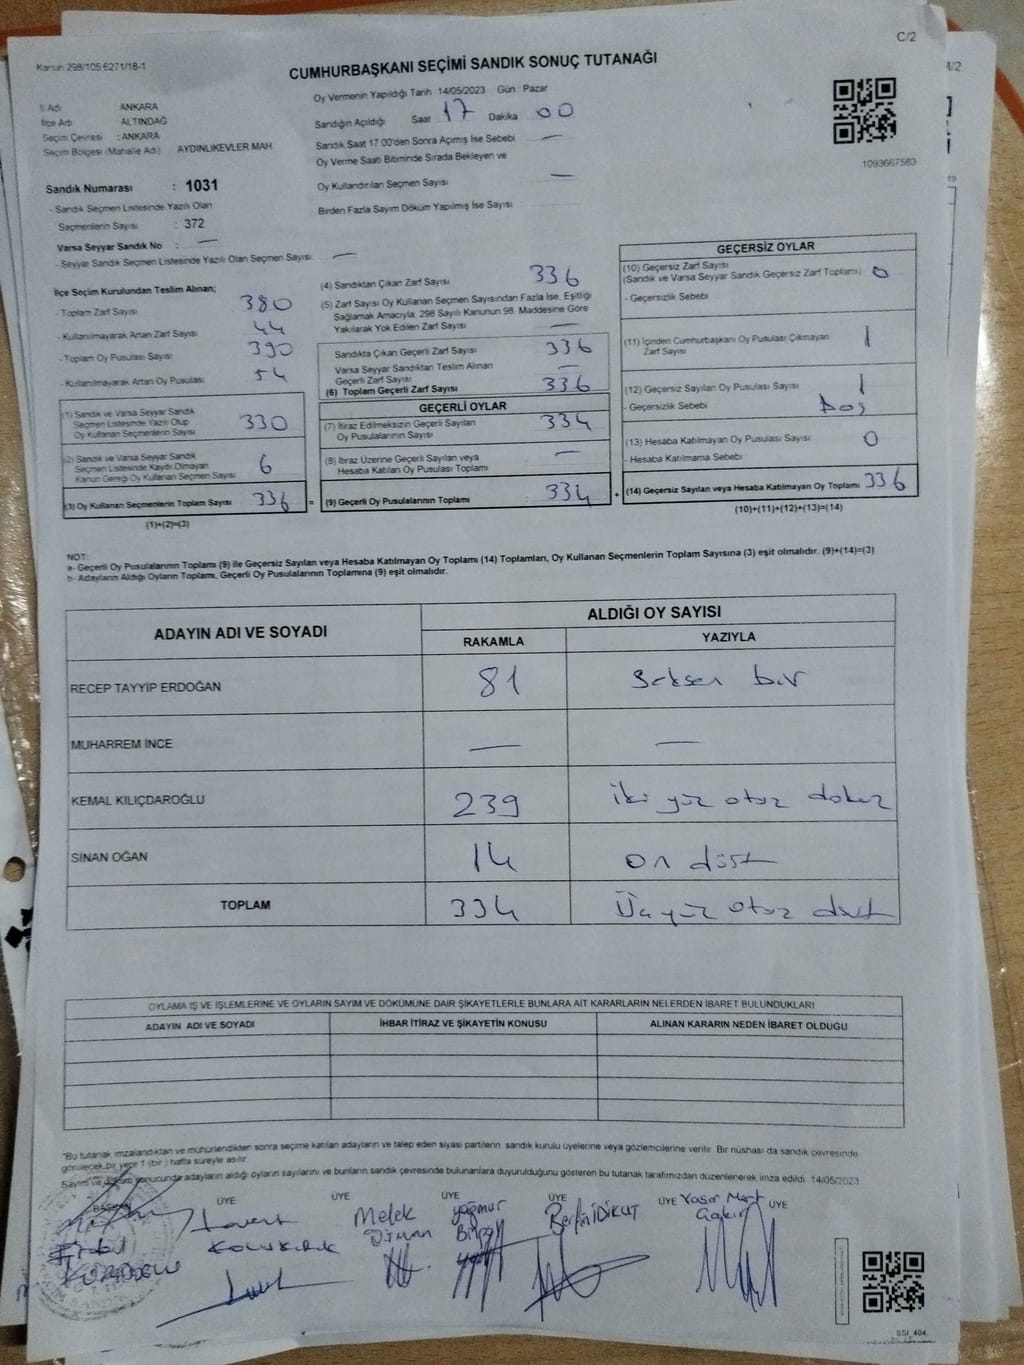 C/2
Kanun 298/105 6271/18-1
CUMHURBAŞKANI SEÇİMİ SANDIK SONUÇ TUTANAĞI
İl Adı ANKARA
İlçe Adı ALTINDAĞ
Seçim Çevresi : ANKARA
Seçim Bölgesi (Mahalle Adı) AYDINLIKEVLER MAH
Sandık Numarası : 1031
- Sandık Seçmen Listesinde Yazılı Olan
Seçmenlerin Sayısı : 372
Varsa Seyyar Sandık No : —
- Seyyar Sandık Seçmen Listesinde Yazılı Olan Seçmen Sayısı: —
Oy Vermenin Yapıldığı Tarih 14/05/2023 Gün : Pazar
Sandığın Açıldığı Saat 17 Dakika 00
Sandık Saat 17 00'den Sonra Açımış İse Sebebi —
Oy Verme Saati Bitiminde Sırada Bekleyen ve
Oy Kullandırılan Seçmen Sayısı —
Birden Fazla Sayım Döküm Yapılmış İse Sayısı :
1093667583
İlçe Seçim Kurulundan Teslim Alınan;
- Toplam Zarf Sayısı 380
- Kullanılmayarak Artan Zarf Sayısı 44
- Toplam Oy Pusulası Sayısı 390
- Kullanılmayarak Artan Oy Pusulası 54
(1) Sandık ve Varsa Seyyar Sandık
Seçmen Listesinde Yazılı Olup
Oy Kullanan Seçmenlerin Sayısı 330
(2) Sandık ve Varsa Seyyar Sandık
Seçmen Listesinde Kayıtlı Olmayan
Kanun Gereği Oy Kullanan Seçmen Sayısı 6
(3) Oy Kullanan Seçmenlerin Toplam Sayısı 336
(1)+(2)=(3)
(4) Sandıktan Çıkan Zarf Sayısı 336
(5) Zarf Sayısı Oy Kullanan Seçmen Sayısından Fazla İse, Eşitliği
Sağlamak Amacıyla, 298 Sayılı Kanunun 98. Maddesine Göre
Yakılarak Yok Edilen Zarf Sayısı —
Sandıkta Çıkan Geçerli Zarf Sayısı 336
Varsa Seyyar Sandıktan Teslim Alınan
Geçerli Zarf Sayısı —
(6) Toplam Geçerli Zarf Sayısı 336
GEÇERLİ OYLAR
(7) İtiraz Edilmeksizin Geçerli Sayılan
Oy Pusulalarının Sayısı 334
(8) İtiraz Üzerine Geçerli Sayılan veya
Hesaba Katılan Oy Pusulası Toplamı —
= (9) Geçerli Oy Pusulalarının Toplamı : 334
GEÇERSİZ OYLAR
(10) Geçersiz Zarf Sayısı
(Sandık ve Varsa Seyyar Sandık Geçersiz Zarf Toplamı) 0
- Geçersizlik Sebebi
(11) İçinden Cumhurbaşkanı Oy Pusulası Çıkmayan
Zarf Sayısı 1
(12) Geçersiz Sayılan Oy Pusulası Sayısı 1
- Geçersizlik Sebebi Boş
(13) Hesaba Katılmayan Oy Pusulası Sayısı 0
- Hesaba Katılmama Sebebi
+ (14) Geçersiz Sayılan veya Hesaba Katılmayan Oy Toplamı 336
(10)+(11)+(12)+(13)=(14)
NOT:
a- Geçerli Oy Pusulalarının Toplamı (9) ile Geçersiz Sayılan veya Hesaba Katılmayan Oy Toplamı (14) Toplamları, Oy Kullanan Seçmenlerin Toplam Sayısına (3) eşit olmalıdır. (9)+(14)=(3)
b- Adayların Aldığı Oyların Toplamı, Geçerli Oy Pusulalarının Toplamına (9) eşit olmalıdır.
ADAYIN ADI VE SOYADI ALDIĞI OY SAYISI
RAKAMLA YAZIYLA
RECEP TAYYİP ERDOĞAN 81 Seksen bir
MUHARREM İNCE — —
KEMAL KILIÇDAROĞLU 239 iki yüz otuz dokuz
SİNAN OĞAN 14 on dört
TOPLAM 334 Üç yüz otuz dört
OYLAMA İŞ VE İŞLEMLERİNE VE OYLARIN SAYIM VE DÖKÜMÜNE DAİR ŞİKAYETLERLE BUNLARA AİT KARARLARIN NELERDEN İBARET BULUNDUKLARI
ADAYIN ADI VE SOYADI İHBAR İTİRAZ VE ŞİKAYETİN KONUSU ALINAN KARARIN NEDEN İBARET OLDUĞU
"Bu tutanak imzalandıktan ve mühürlendikten sonra seçime katılan adayların ve talep eden siyasi partilerin sandık kurulu üyelerine veya gözlemcilerine verilir. Bir nüshası da sandık çevresinde
görülecek bir yere 1 (bir) hafta süreyle asılır.
Sayım ve döküm sonucunda adayların aldığı oyların sayılarını ve bunların sandık çevresinde bulunanlara duyurulduğunu gösteren bu tutanak tarafımızdan düzenlenerek imza edildi. 14/05/2023
BAŞKAN ÜYE ÜYE ÜYE ÜYE ÜYE ÜYE
Melek
Yağmur
Berfin DİKUT
Yaşar Mert
SSI_404.